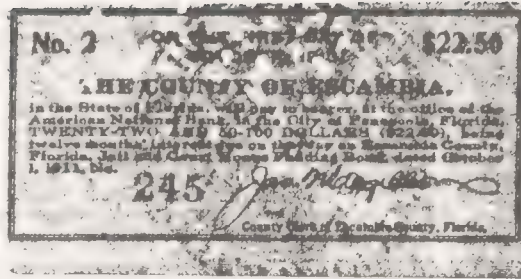 No. 2 ON THE FIRST DAY OF $22.50
THE COUNTY OF ESCAMBIA,
in the State of Florida, will pay to bearer, at the office of the
American National Bank, in the City of Pensacola, Florida,
TWENTY-TWO AND 50-100 DOLLARS ($22.50), being
twelve months' interest due on that day on Escambia County,
Florida, Jail and Court House Funding Bond, dated October
1, 1911, No.
245
County Clerk of Escambia County, Florida.